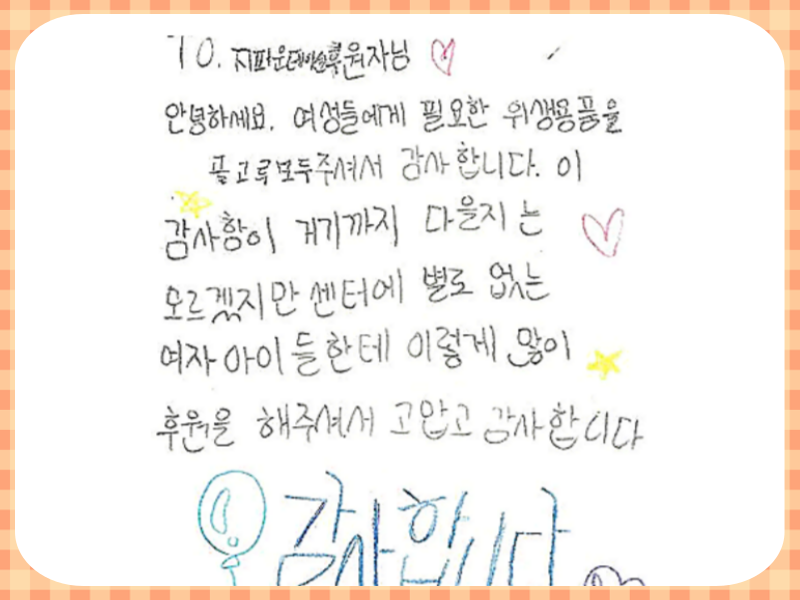 To. 지파운데이션후원자님
안녕하세요. 여성들에게 필요한 위생용품을
골고루모두주셔서 감사합니다. 이
감사함이 거기까지 다을지는
모르겠지만 센터에 별로 없는
여자아이들한테 이렇게 많이
후원을 해주셔서 고맙고 감사합니다
감사합니다